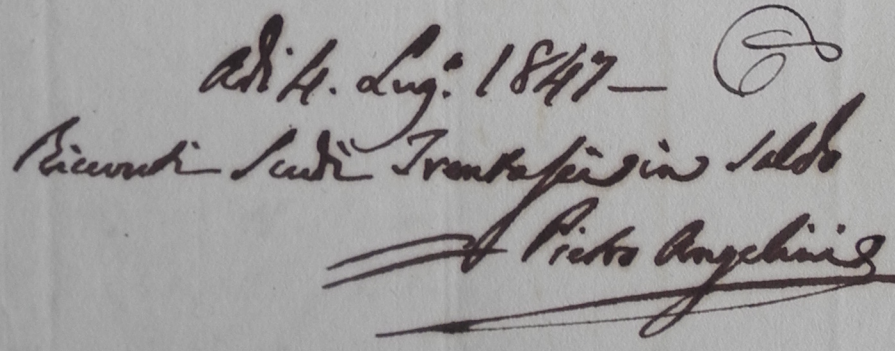 Adì 4. Lug.o 1847 —
Ricevuti Scudi Trentasei in Saldo
Pietro Angelini